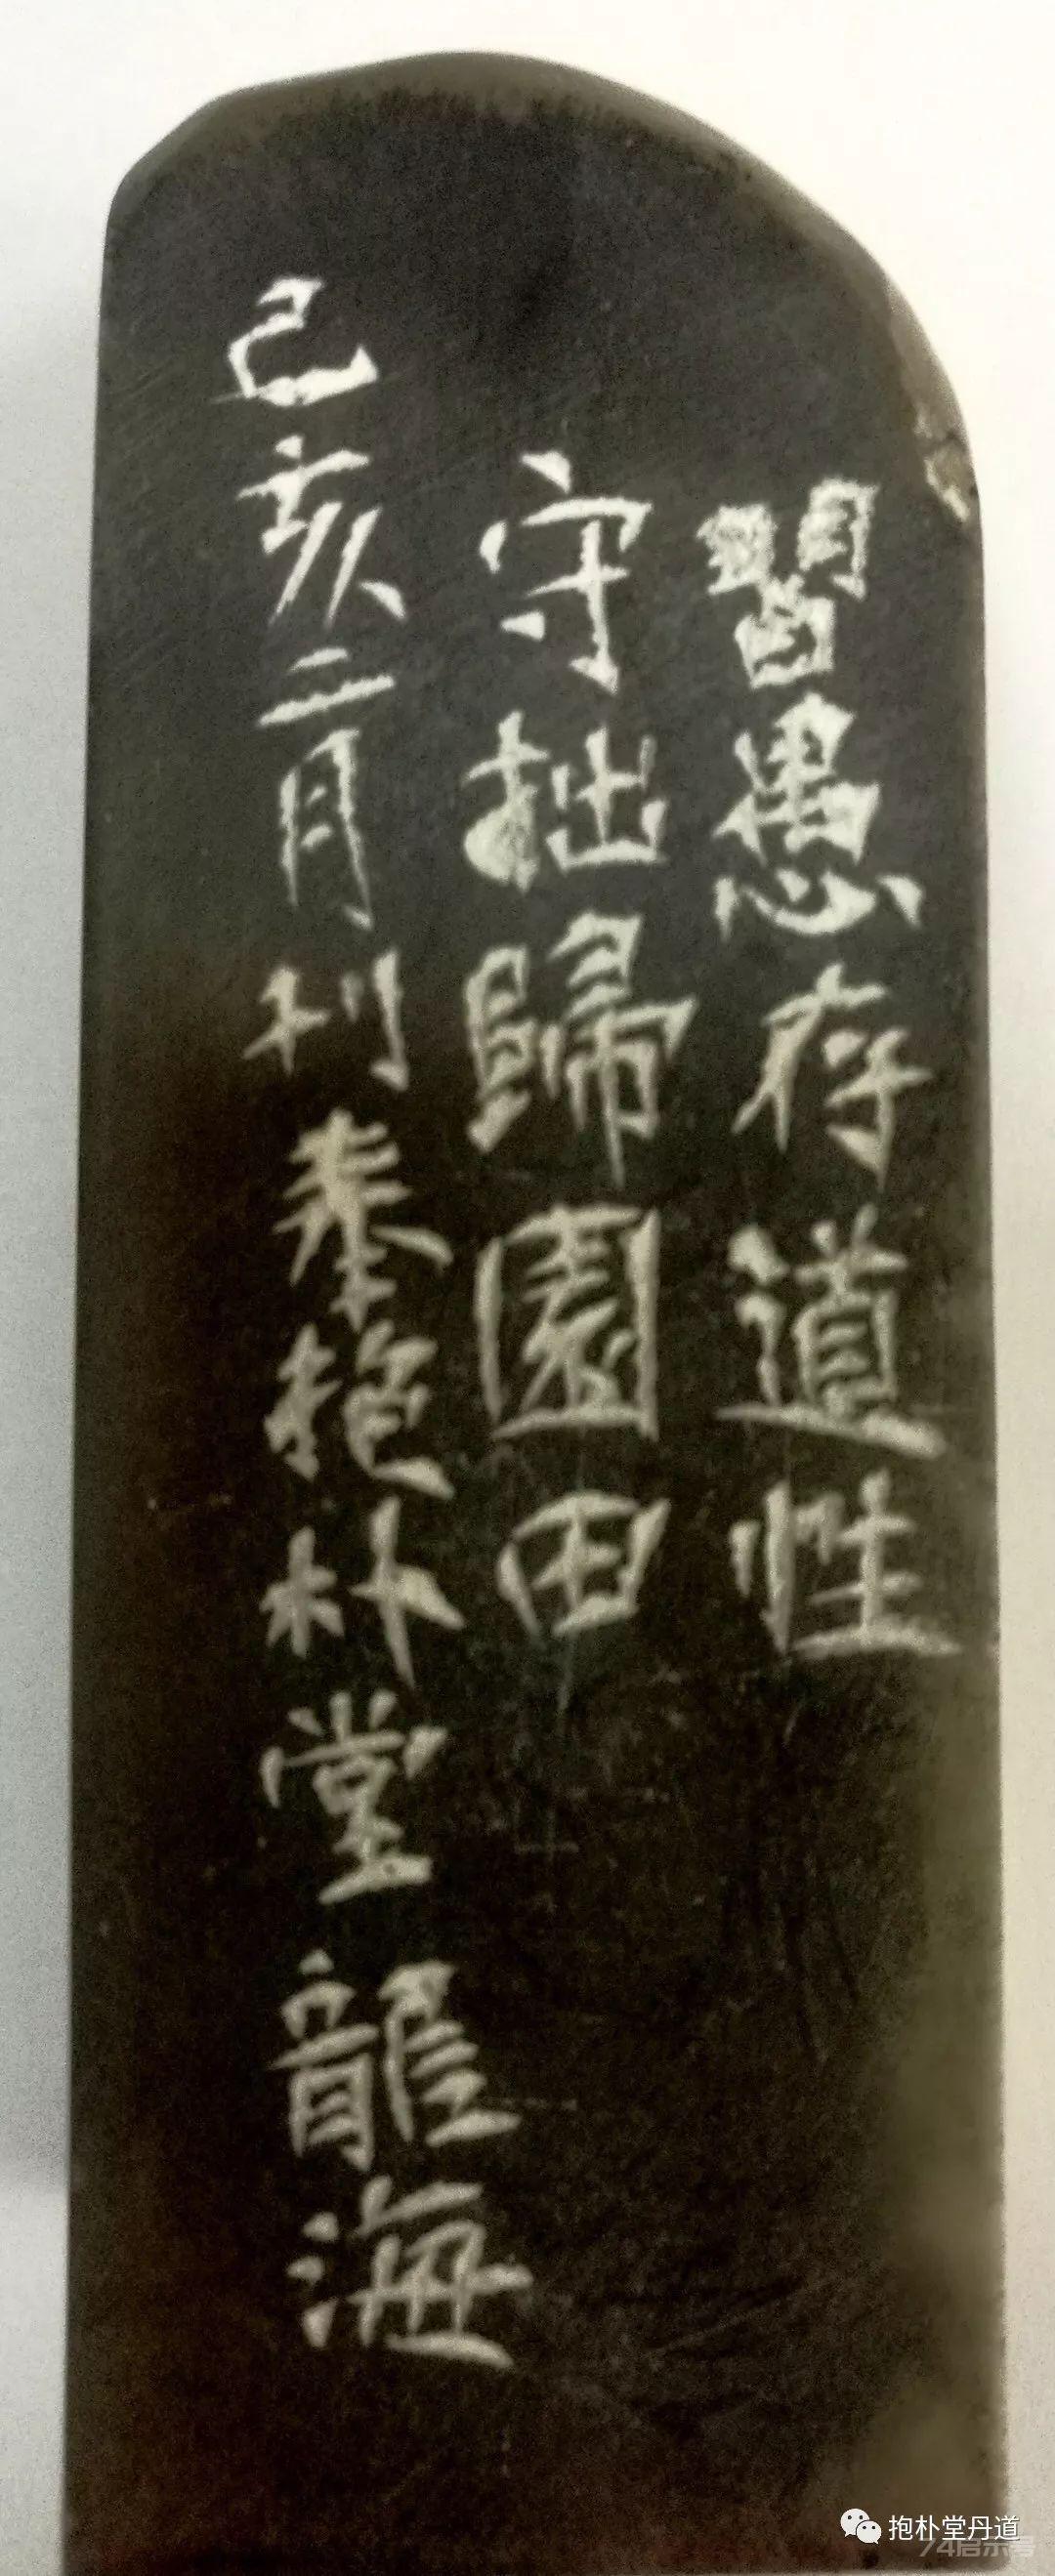 習愚存道性
守拙歸園田
己亥二月刊奉抱朴堂龍海
抱朴堂丹道